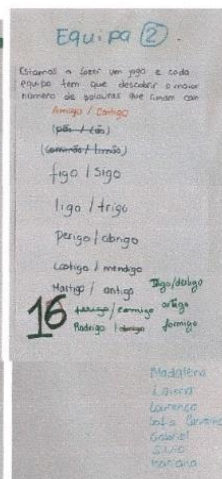 Equipa 2.
Estamos a fazer um jogo e cada
equipa tem que descobrir o maior
número de palavras que rimam com
Amigo / Contigo
(pão / cão)
(camião / limão)
figo / Sigo
ligo / trigo
Perigo / abrigo
Castigo / mendigo
Mastigo / antigo Tiago/
16 / comigo artigo
Rodrigo / abrigo formigo
Madalena
Laura
Lourenço
Sofia
Gabriel
Sílvio
Mariana